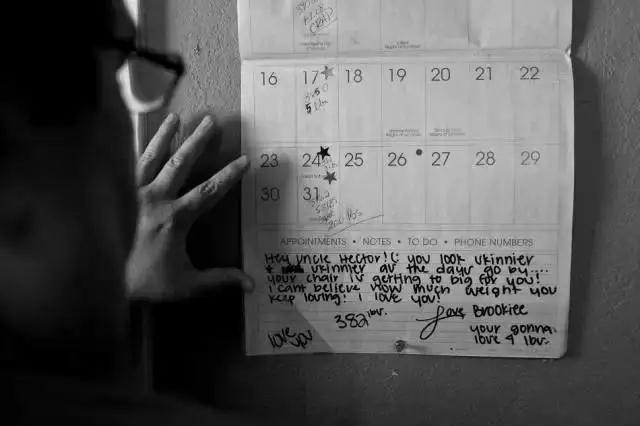 16 17 18 19 20 21 22
5 lbs
23 24 25 26 27 28 29
30 31
APPOINTMENTS • NOTES • TO DO • PHONE NUMBERS
Hey Uncle Hector! (: you look skinnier
& skinnier as the days go by....
your chair is getting to big for you!
i cant believe how much weight you
keep losing! I love you!
382 lbs.
Love Brookiee
love you
your gonna
lose 4 lbs.